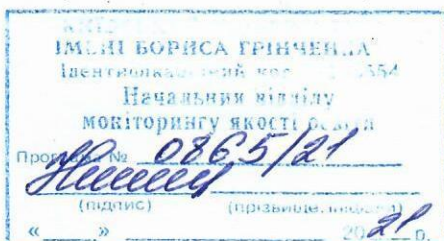 ІМЕНІ БОРИСА ГРІНЧЕНКА
Ідентифікаційний код
Начальник відділу
моніторингу якості освіти
Програма № 0865/21
(підпис) (прізвище, ініціали)
« » 2021 р.